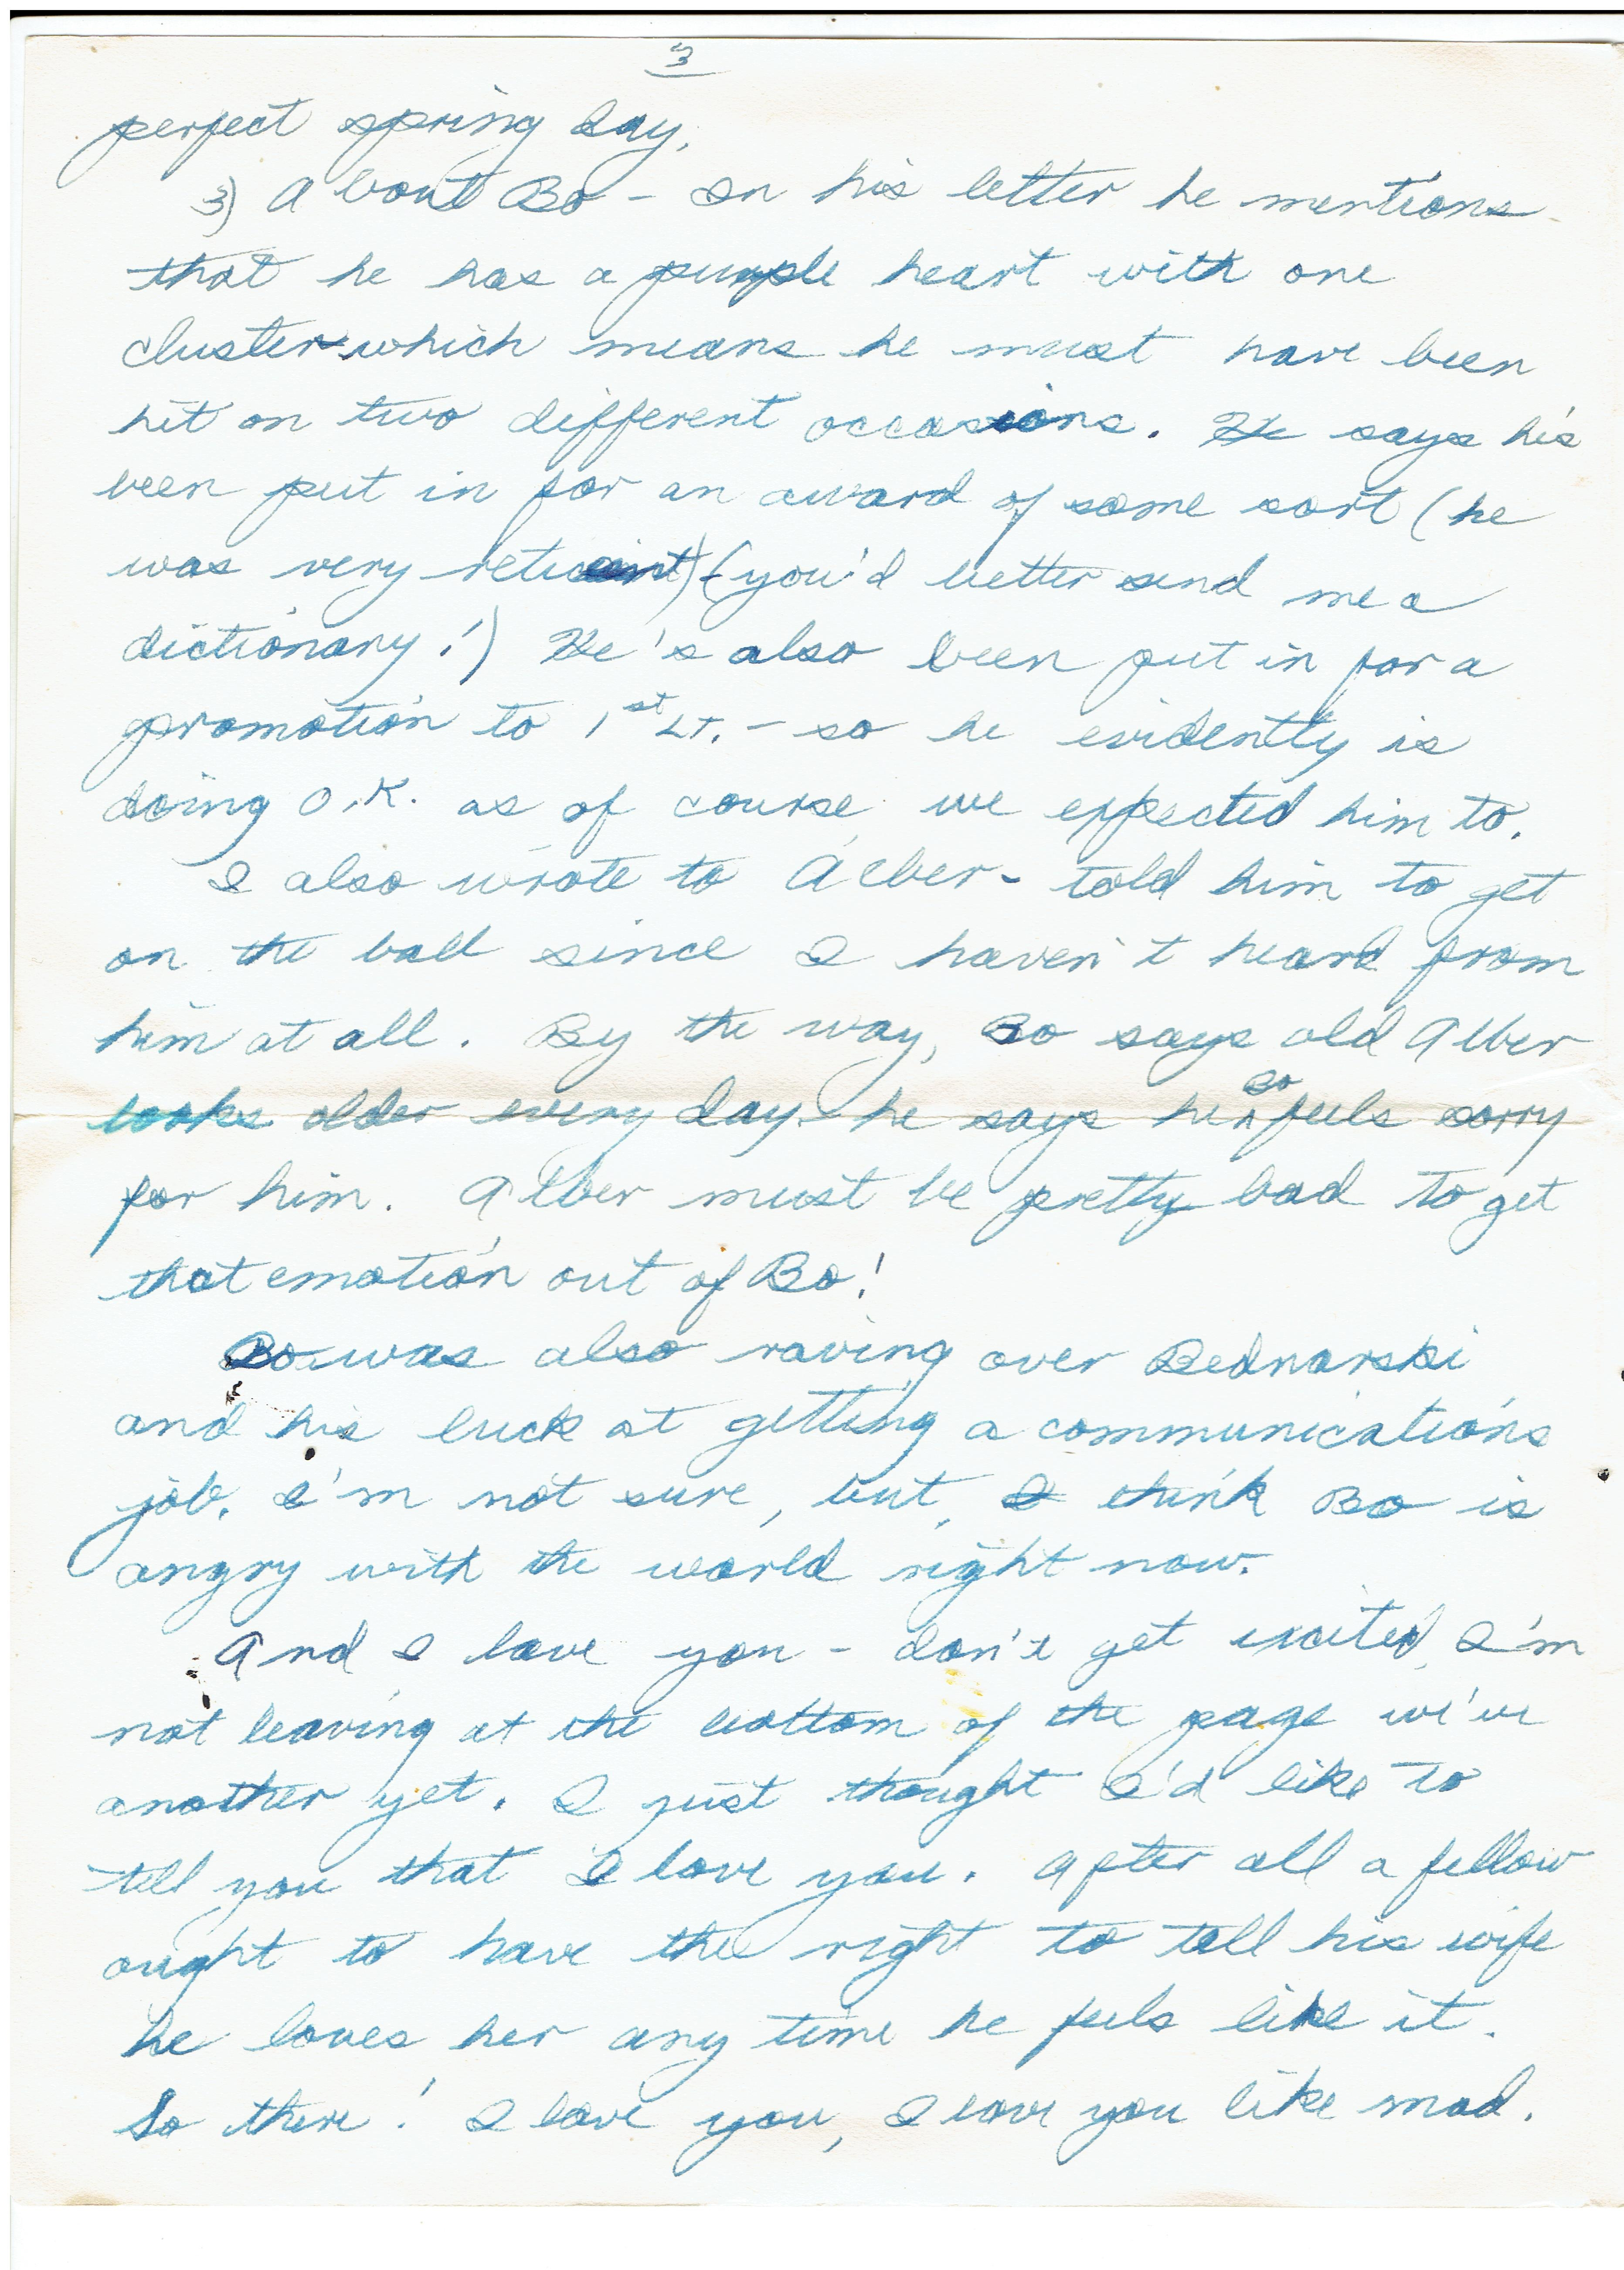 3
perfect spring day.
3) About Bo - In his letter he mentions
that he has a purple heart with one
cluster which means he must have been
hit on two different occasions. He says he's
been put in for an award of some sort (he
was very reticent) (you'd better send me a
dictionary!) He's also been put in for a
promotion to 1st LT. - so he evidently is
doing O.K. as of course we expected him to.
I also wrote to Alber - told him to get
on the ball since I haven't heard from
him at all. By the way, Bo says old Alber
looks older every day - he says he Bo feels sorry
for him. Alber must be pretty bad to get
that emotion out of Bo!
Bo was also raving over Bednarski
and his luck at getting a communications
job. I'm not sure, but, I think Bo is
angry with the world right now.
And I love you - don't get excited, I'm
not leaving at the bottom of the page we've
another yet. I just thought I'd like to
tell you that I love you. After all a fellow
ought to have the right to tell his wife
he loves her any time he feels like it.
So there! I love you, I love you like mad.